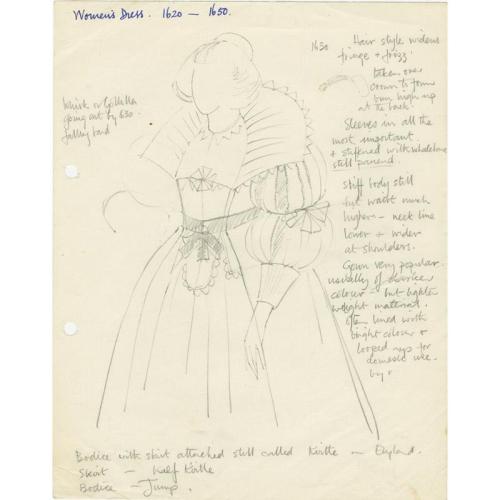 Women's Dress. 1620 — 1650.
1630 Hair style widens
fringe + frizz.
taken over
crown to form
bun high up
at the back.
Whisk or Gollilla
going out by 630.
falling band
Sleeves in all the
most important.
+ stiffened with whalebone
still paned.
stiff body still
but waist much
higher - neck line
lower + wider
at shoulders.
Gown very popular.
usually of
colour - but lighter
weight material.
often lined with
bright colour +
looped up for
domestic use.
by
Bodice with skirt attached still called Kirtle in England.
Skirt - Half Kirtle
Bodice - Jump.